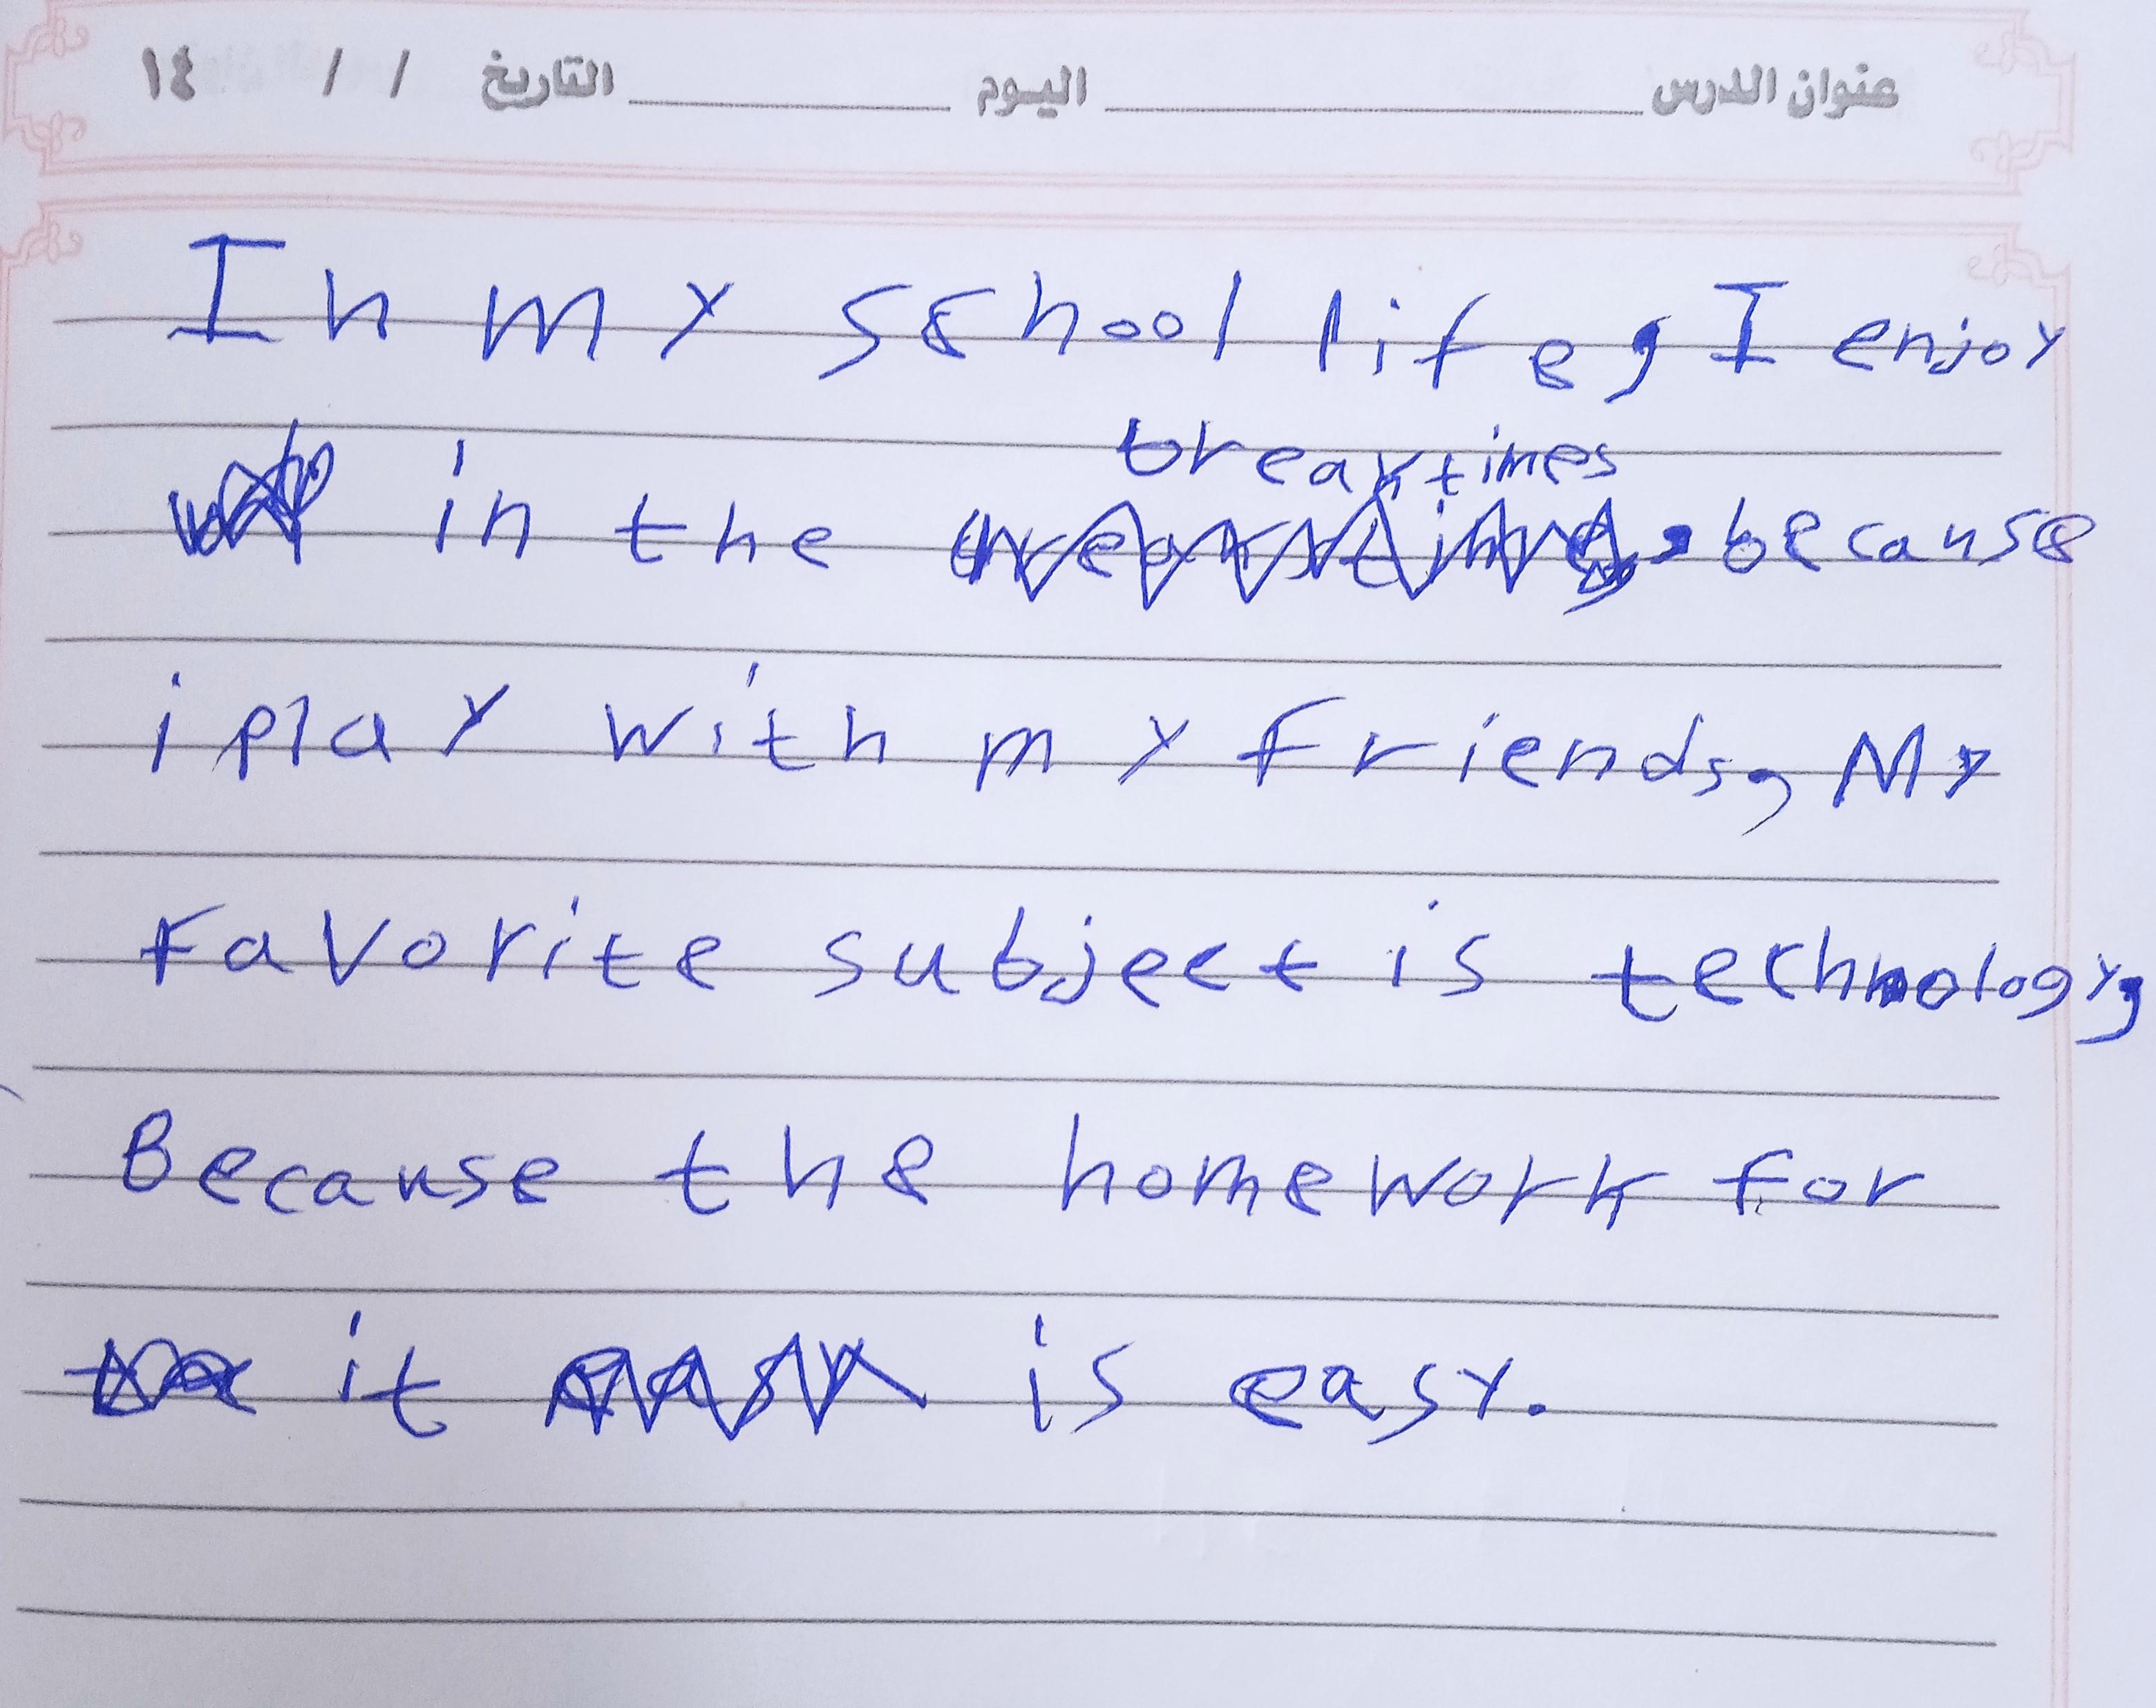 عنوان الدرس اليوم التاريخ / / ١٤
In my school life, I enjoy
in the breaktimes, because
i play with my friends, My
favorite subject is technology,
Because the homework for
it is easy.